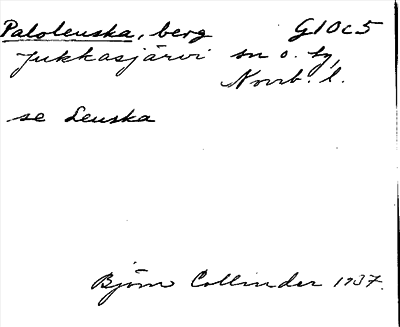 Paloleuska, berg G10c5
Jukkasjärvi sn o. sg,
Norrb. l.
se Leuska
Björn Collinder 1937.